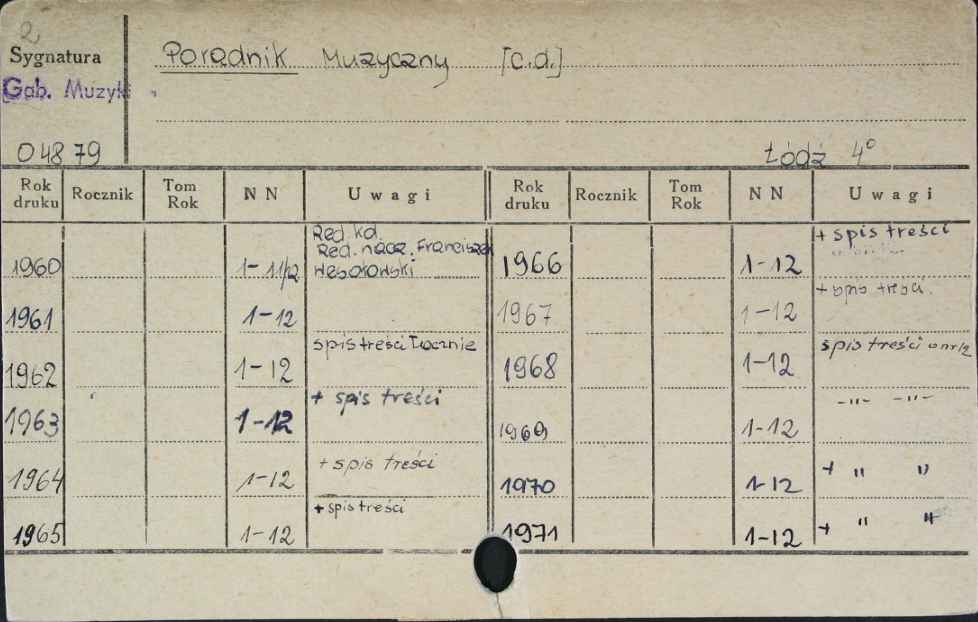 2
Sygnatura
Porądnik Muzyczny [c.d.]
Gab. Muzyki
04879
Łódź 4°
Rok druku Rocznik Tom Rok N N Uwagi Rok druku Rocznik Tom Rok N N Uwagi
1960 1-11/12 Red. kol. Red. nacz. Franciszek Wesołowski
1961 1-12
1962 1-12 spis treści łącznie
1963 1-12 + spis treści
1964 1-12 + spis treści
1965 1-12 + spis treści
1966 1-12 + spis treści
1967 1-12 + spis treści.
1968 1-12 spis treści w nr 12
1969 1-12 -"- -"-
1970 1-12 + " "
1971 1-12 + " "